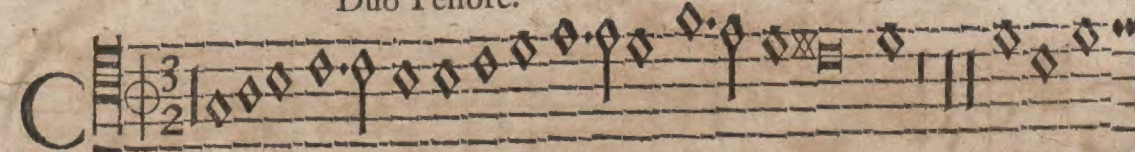 Duo Tenore.
C 3
2